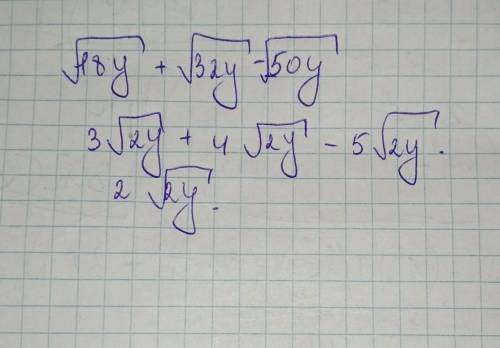 √18y + √32y - √50y
3√2y + 4√2y - 5√2y.
2√2y.